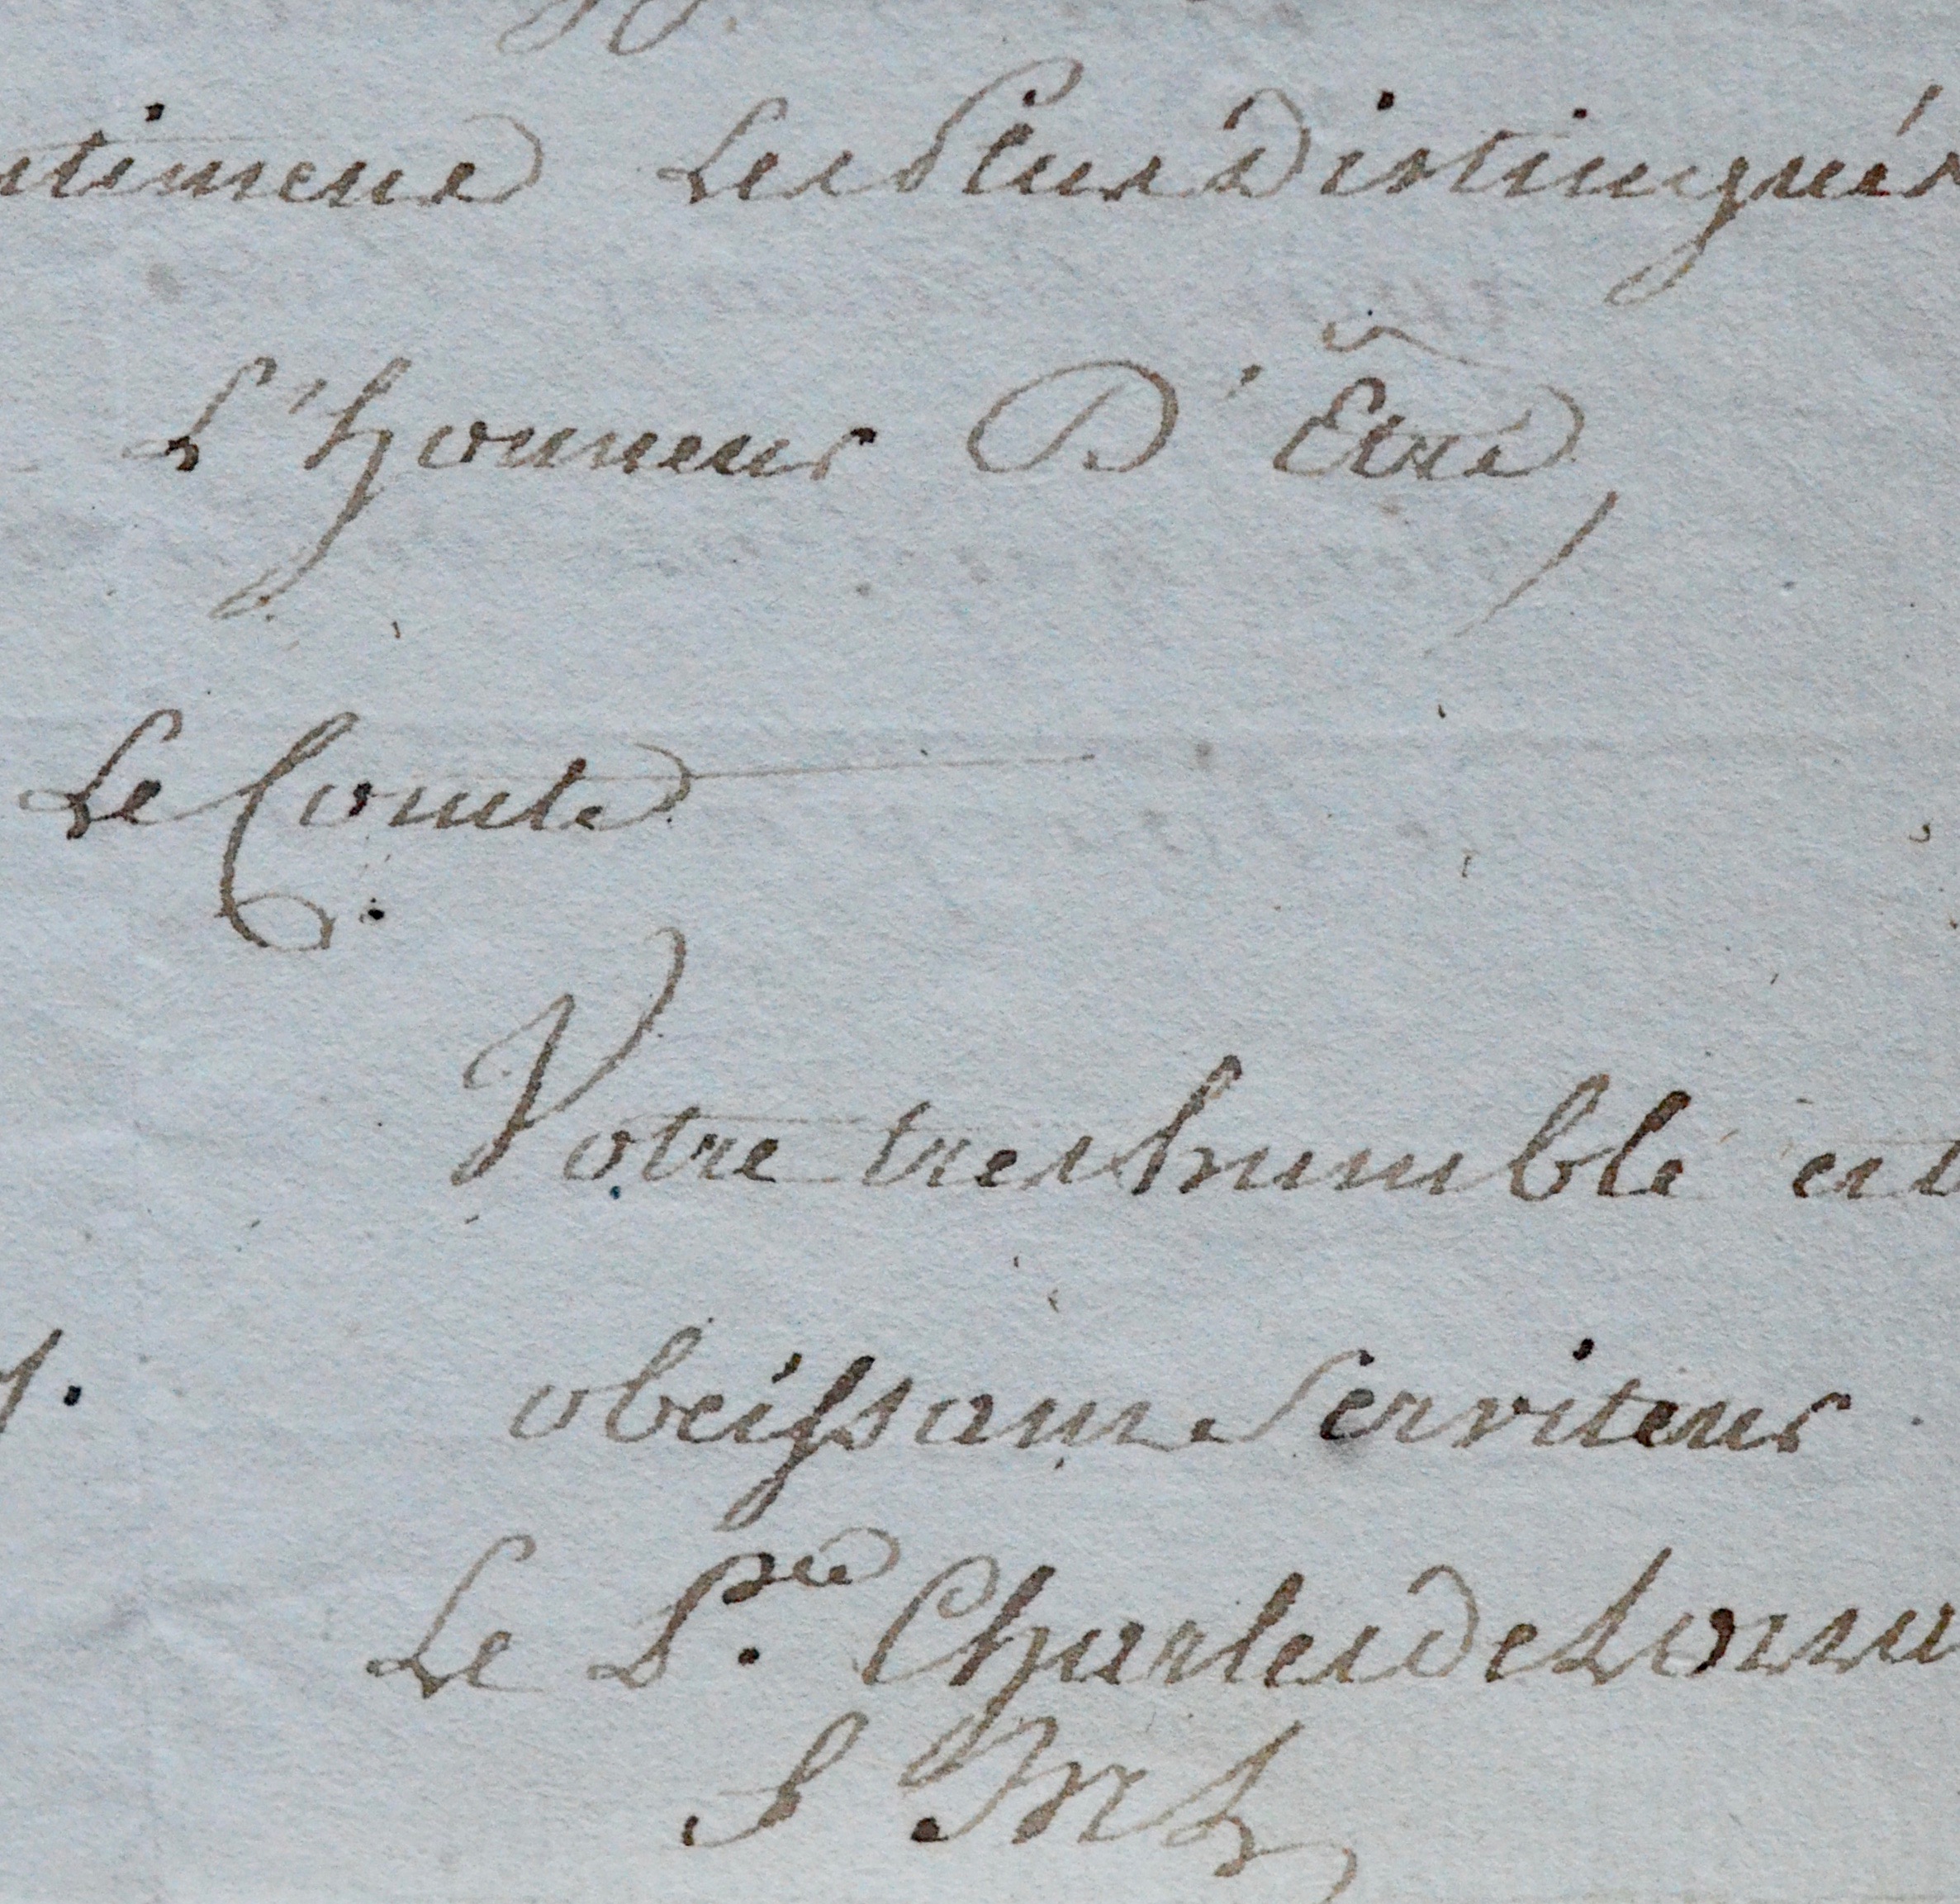 ntimens Les Plus Distingués
L'honneur D'Être,
Le Comte
Votre tres humble et
obeissant Serviteur
Le P.ce Charles de Lorra